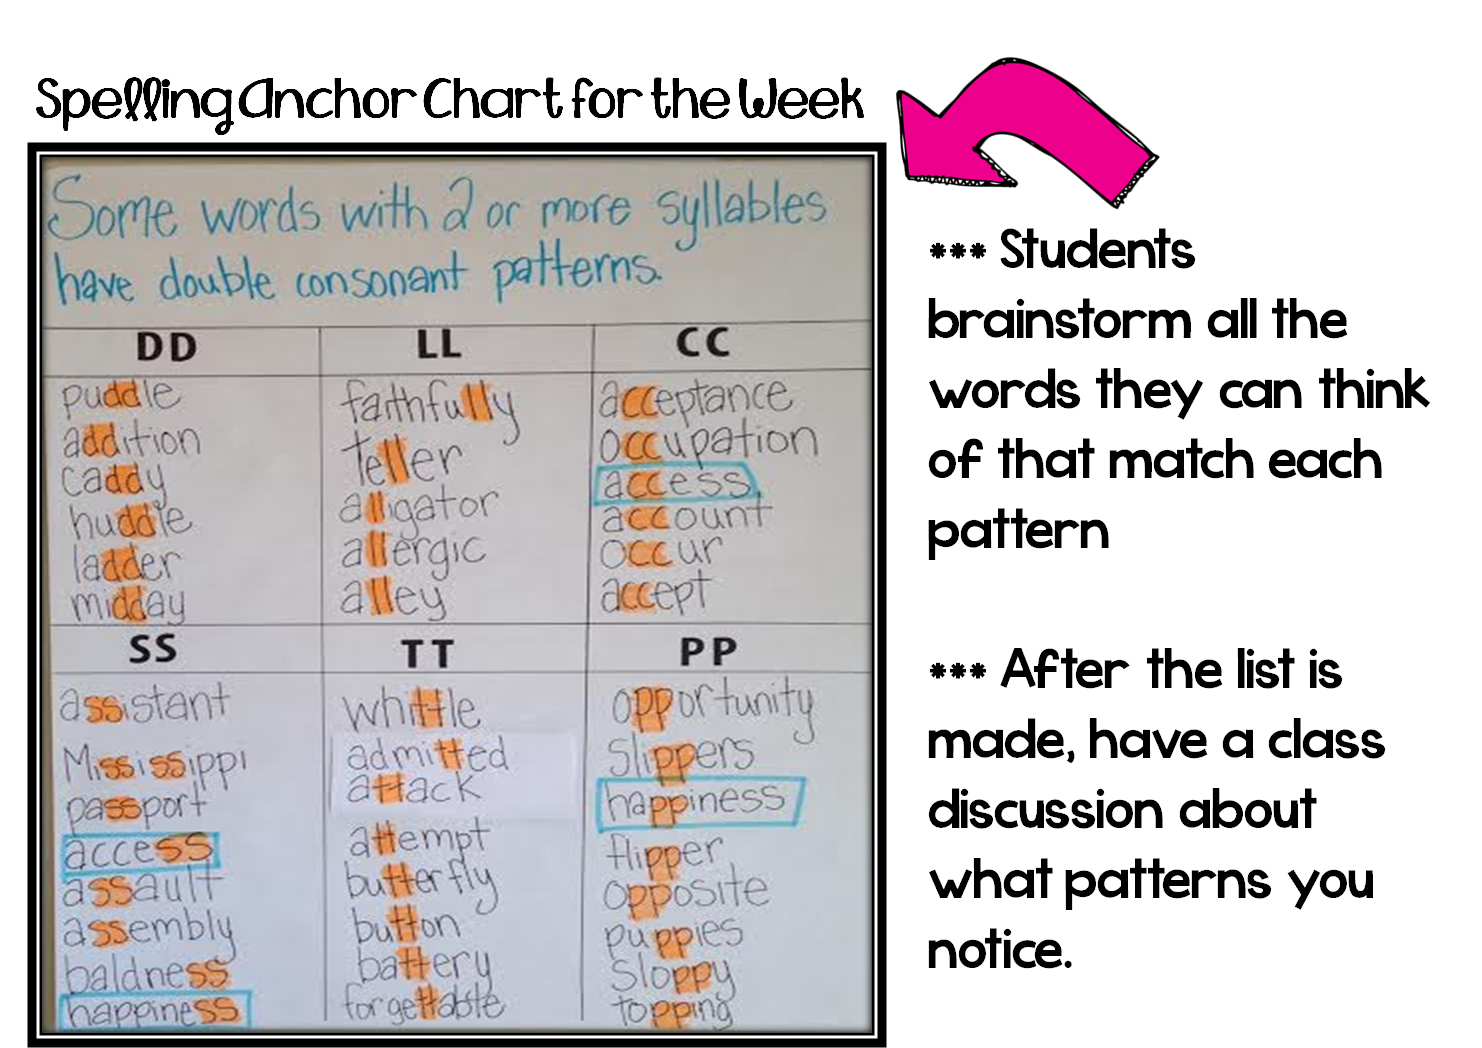 Spelling Anchor Chart for the Week
Some words with 2 or more syllables
have double consonant patterns.
DD
puddle
addition
caddy
huddle
ladder
midday
LL
faithfully
teller
alligator
allergic
alley
CC
acceptance
occupation
access
account
occur
accept
SS
assistant
Mississippi
passport
access
assault
assembly
baldness
happiness
TT
whittle
admitted
attack
attempt
butterfly
button
battery
forgettable
PP
opportunity
Slippers
happiness
flipper
opposite
puppies
Sloppy
topping
*** Students
brainstorm all the
words they can think
of that match each
pattern
*** After the list is
made, have a class
discussion about
what patterns you
notice.